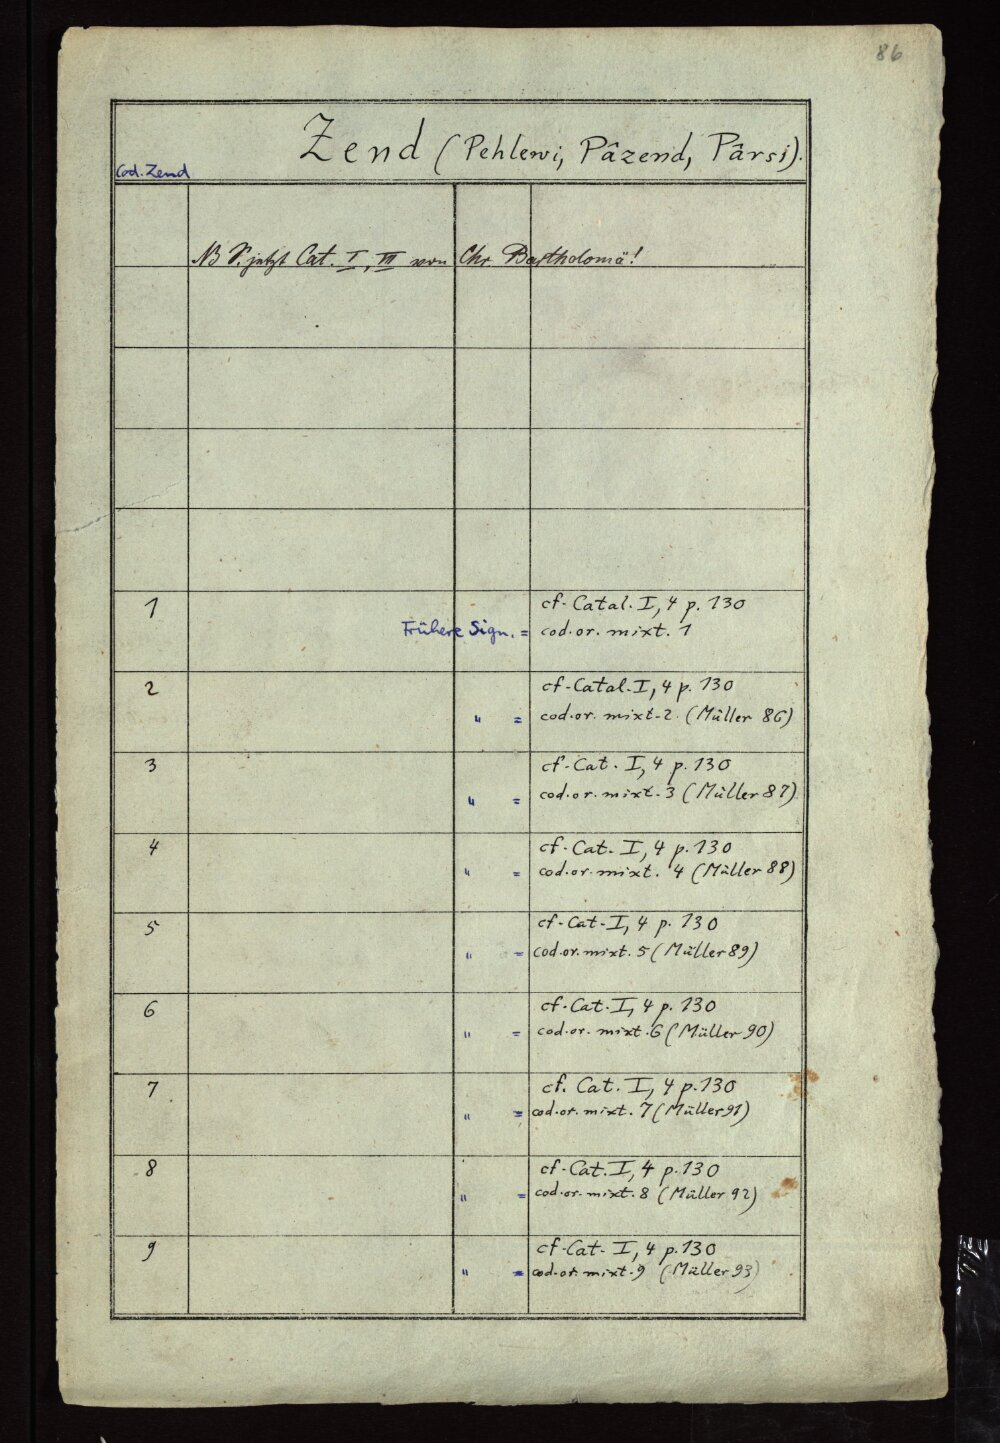 86
Zend (Pehlewi, Pâzend, Pârsi).
Cod. Zend
NB S. jetzt Cat. I, III von Chr. Bartholomä!
1 cf. Catal. I, 4 p. 130
Frühere Sign. = cod. or. mixt. 1
2 cf. Catal. I, 4 p. 130
" = cod. or. mixt. 2. (Müller 86)
3 cf. Cat. I, 4 p. 130
" = cod. or. mixt. 3 (Müller 87)
4 cf. Cat. I, 4 p. 130
" = cod. or. mixt. 4 (Müller 88)
5 cf. Cat. I, 4 p. 130
" = cod. or. mixt. 5 (Müller 89)
6 cf. Cat. I, 4 p. 130
" = cod. or. mixt. 6 (Müller 90)
7 cf. Cat. I, 4 p. 130
" = cod. or. mixt. 7 (Müller 91)
8 cf. Cat. I, 4 p. 130
" = cod. or. mixt. 8 (Müller 92)
9 cf. Cat. I, 4 p. 130
" = cod. or. mixt. 9 (Müller 93)